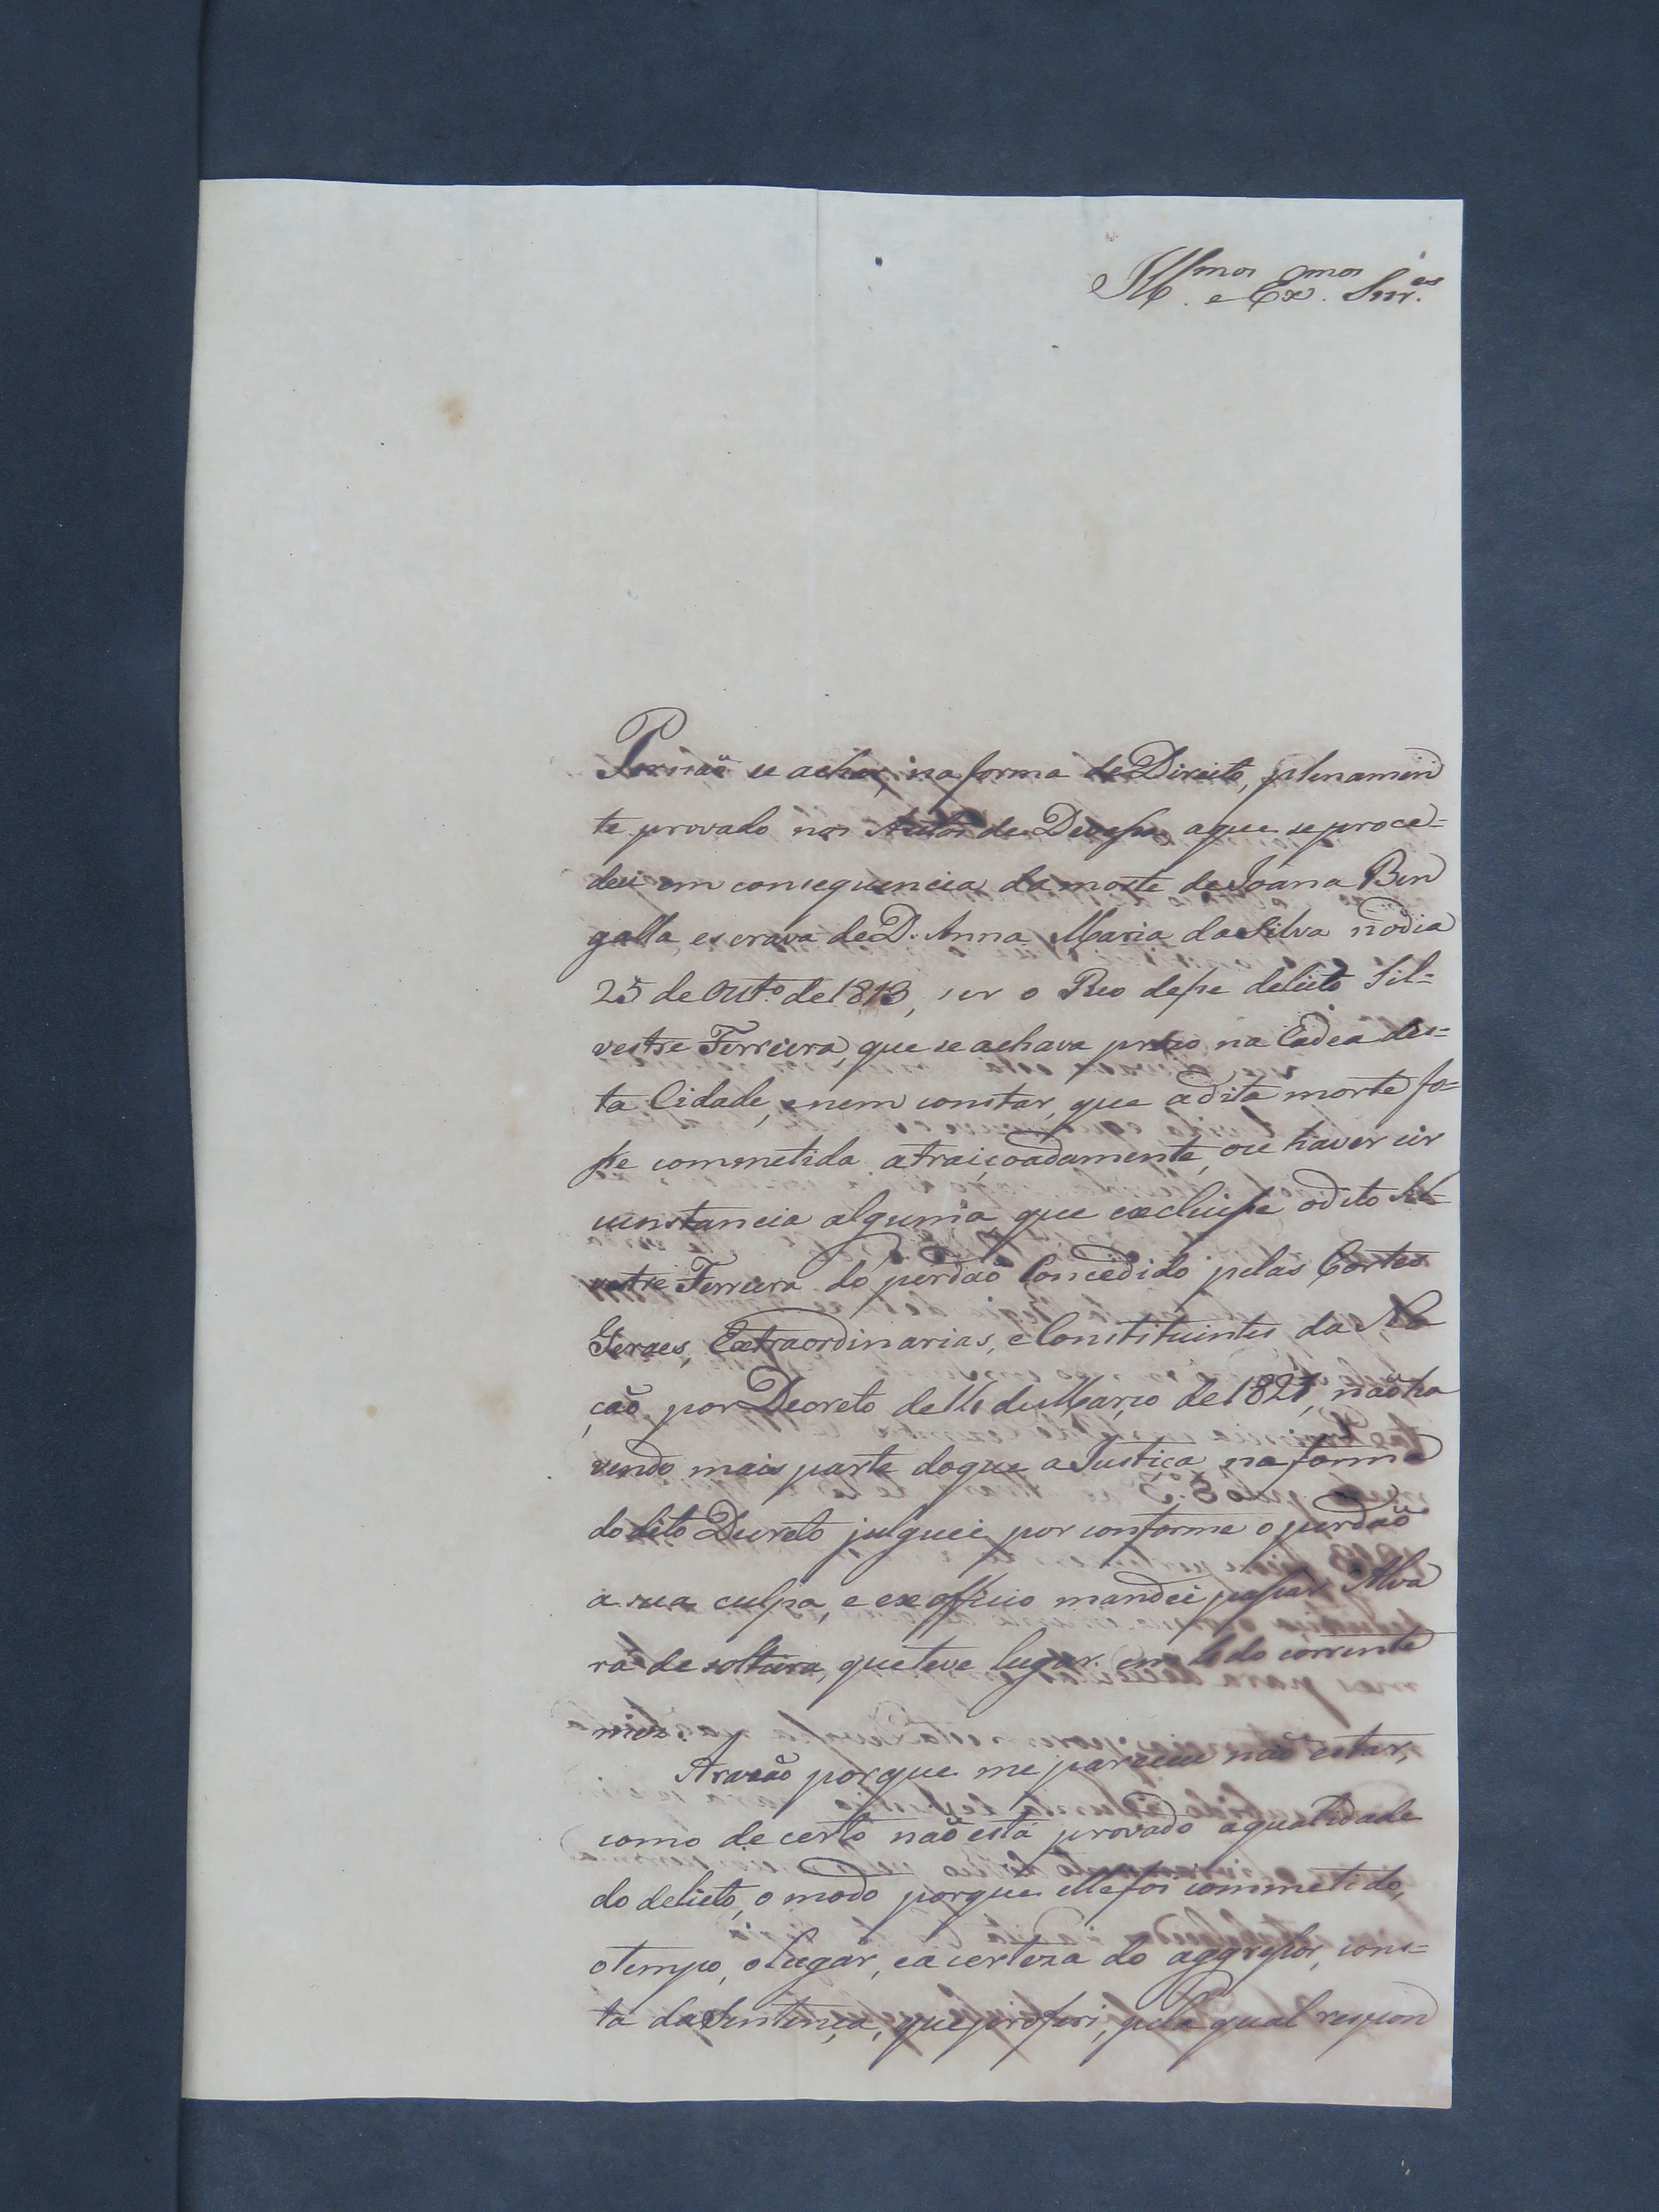 Ill.mos e Ex.mos Snr.es
Por naõ se achar, na forma de Direito, plenamen
te provado nos Autos de Devassa aque se proce=
deu em consequencia da morte de Joana Ben
galla, escrava de D. Anna Maria da Silva nodia
25 de Outº de 1813, ser o Reo desse delicto Sil=
vestre Ferreira, que se achava prezo na Cadea des=
ta Cidade, e nem constar, que adita morte fo=
sse commetida atraiçoadamente, ou haver cir
cunstancia alguma que excluisse odito Sil=
vestre Ferreira do perdaõ Concedido pelas Cortes
Geraes, Extraordinarias, e Constituintes da Na
çaõ, por Decreto de 14 de Março de 1821, naõ ha
vendo mais parte doque a Justiça na forma
do dito Decreto julguei por conforme o perdaõ
a sua culpa, e ex officio mandei passar Alva
rá de soltura, que teve lugar em do corrente
mez.
Arazaõ porque me pareceu naõ estar,
como de certo naõ está provado aqualidade
do delicto, o modo porque elle foi commetido,
otempo, olugar, ea certeza do aggressor, cons=
ta da Sentença, que proferi, pela qual respon